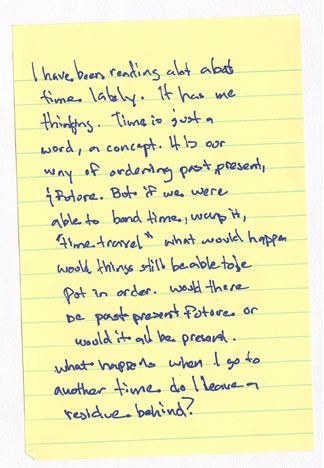 I have been reading alot about
time lately. It has me
thinking. Time is just a
word, a concept. It is our
way of ordering past, present,
& future. But if we were
able to bend time, warp it,
"time travel" what would happen
would things still be able to be
put in order. would there
be past present future or
would it all be present.
what happens when I go to
another time do I leave a
residue behind?